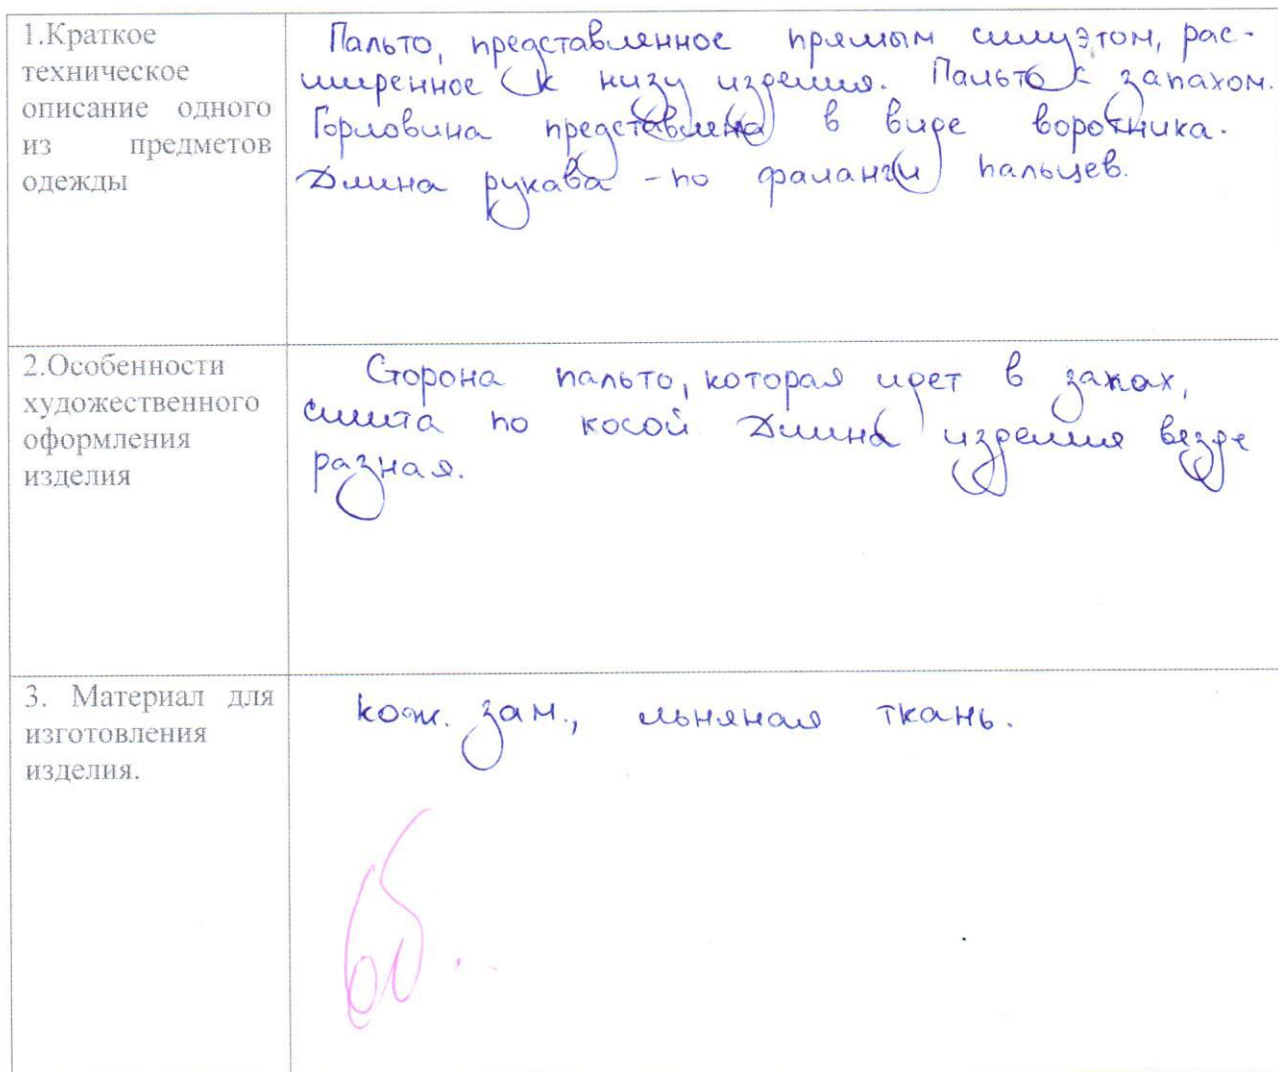 1.Краткое
техническое
описание одного
из предметов
одежды
Пальто, представленное прямым силуэтом, рас-
ширенное к низу изделия. Пальто с запахом.
Горловина представлена в виде воротника.
Длина рукава - по фаланги пальцев.
2.Особенности
художественного
оформления
изделия
Сторона пальто, которая идет в запах,
сшита по косой Длина изделия везде
разная.
3. Материал для
изготовления
изделия.
кож. зам., льняная ткань.